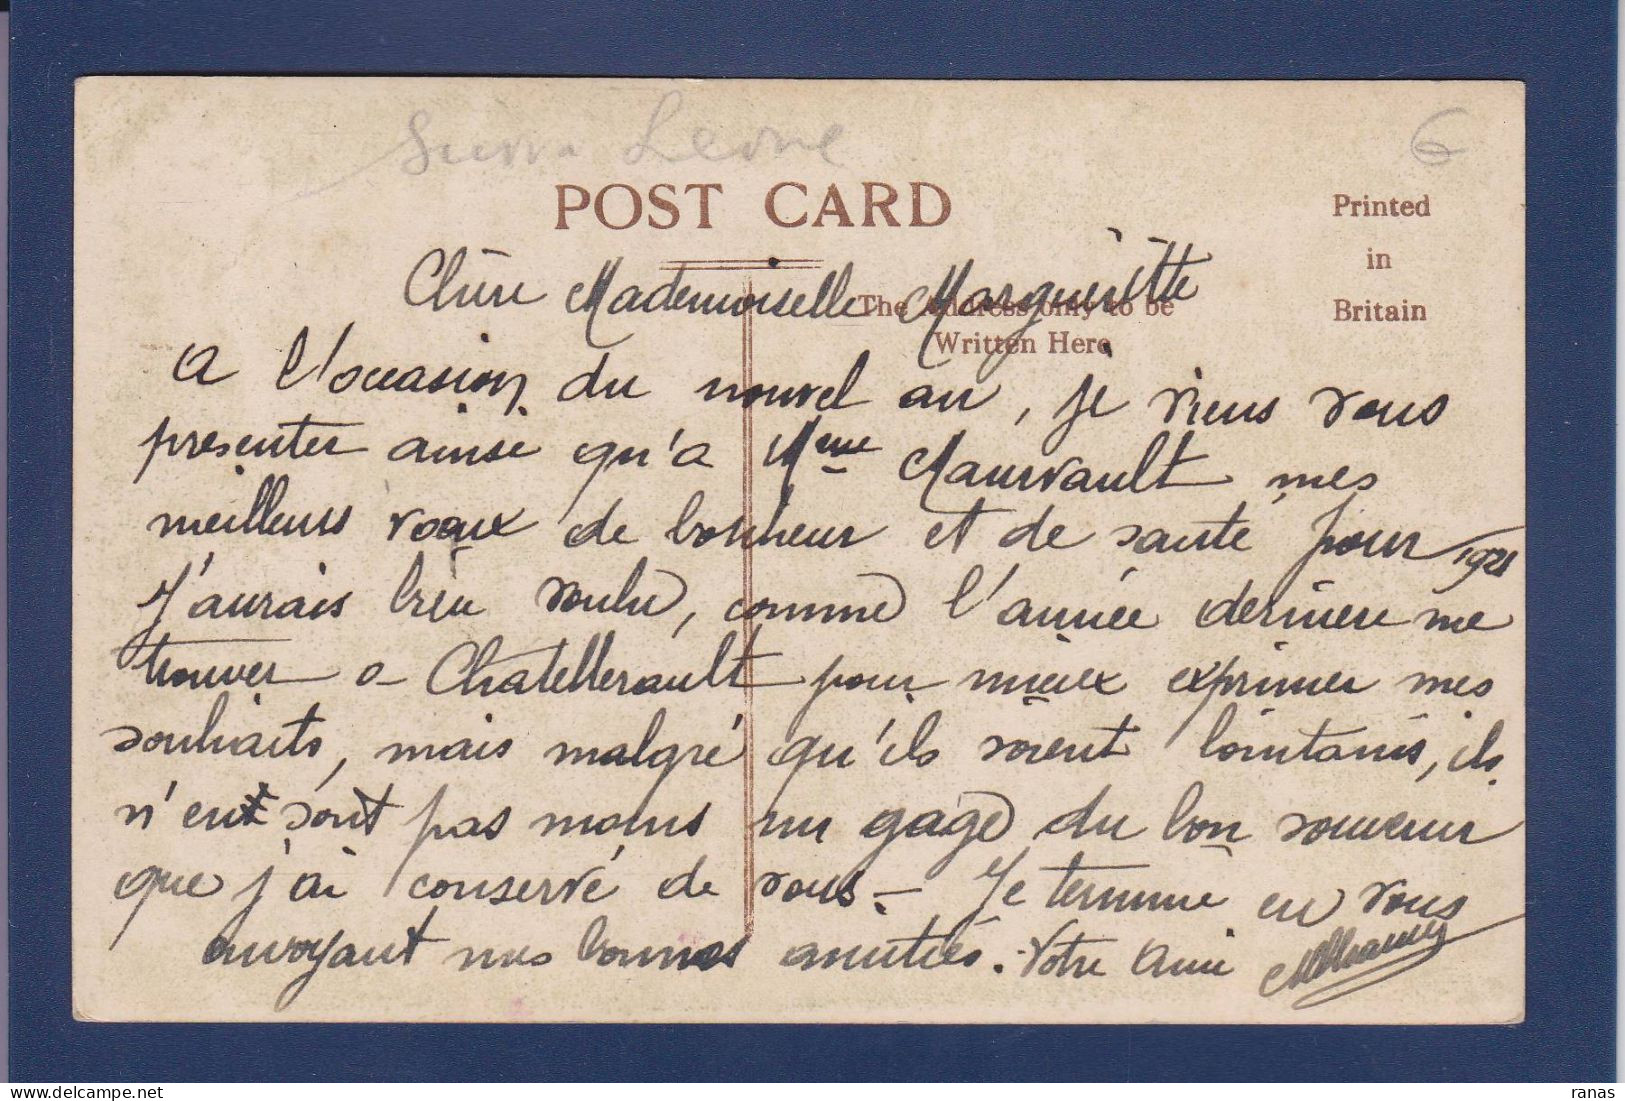 Sierra Leone
6
POST CARD
Printed
in
Britain
The Address only to be
Written Here
Chère Mademoiselle Margueritte
A l'occasion du nouvel an, je viens vous
presenter ainsi qu'a Mme Maurvault mes
meilleurs voeux de bonheur et de santé pour 1921
J'aurais bien voulu, comme l'année dernière me
trouver a Chatellerault pour mieux exprimer mes
souhaits, mais malgré qu'ils soient lointains, ils
n'en sont pas moins un gage du bon souvenir
que j'ai conservé de vous. - Je termine en vous
envoyant mes bonnes amitiés. Votre Ami
ranas